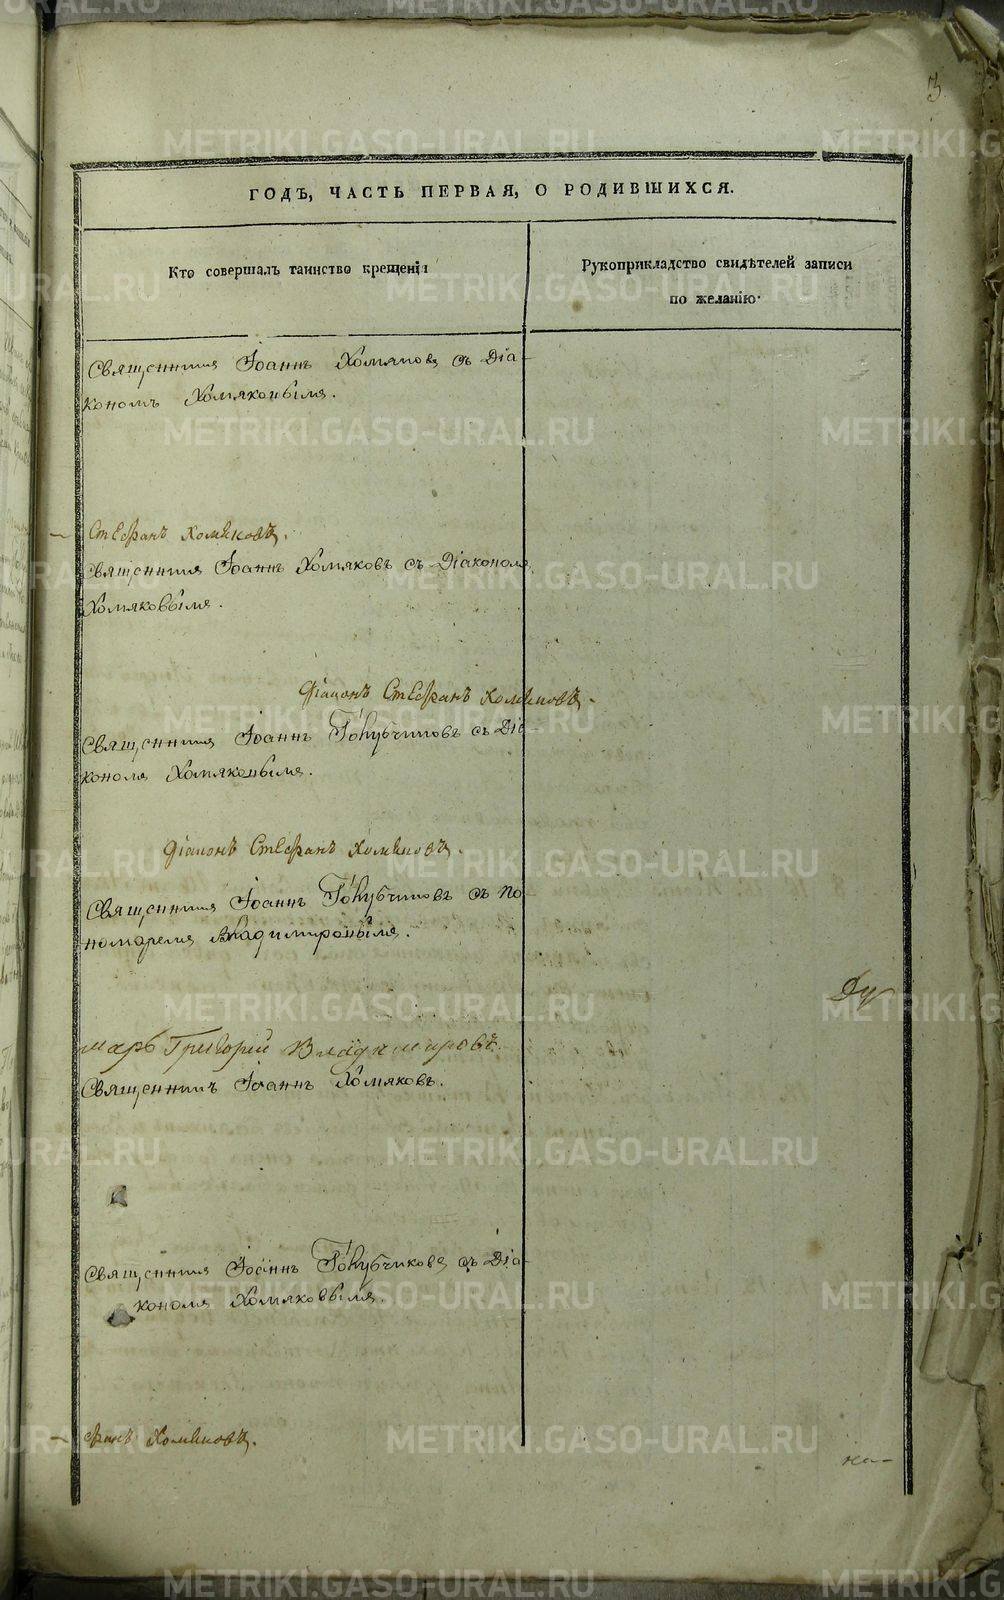 3
ГОДЪ, ЧАСТЬ ПЕРВАЯ, О РОДИВШИХСЯ.
Кто совершалъ таинство крещенія
Рукоприкладство свидѣтелей записи
по желанію.
Священникъ Іоаннъ Хомяковъ съ Діа-
кономъ Хомяковымъ.
Стефанъ Хомяковъ.
Священникъ Іоаннъ Хомяковъ съ Діакономъ
Хомяковымъ.
Діаконъ Стефанъ Хомяковъ.
Священникъ Іоаннъ Голубчиковъ съ Діа
кономъ Хомяковымъ.
Діаконъ Стефанъ Хомяковъ.
Священникъ Іоаннъ Голубчиковъ съ По-
номаремъ Владимировымъ.
марь Григорій Владимировъ.
Священникъ Іоаннъ Хомяковъ.
Священникъ Іоаннъ Голубчиковъ съ Діа-
кономъ Хомяковымъ
фанъ Хомяковъ.
Ду
на-
METRIKI.GASO-URAL.RU